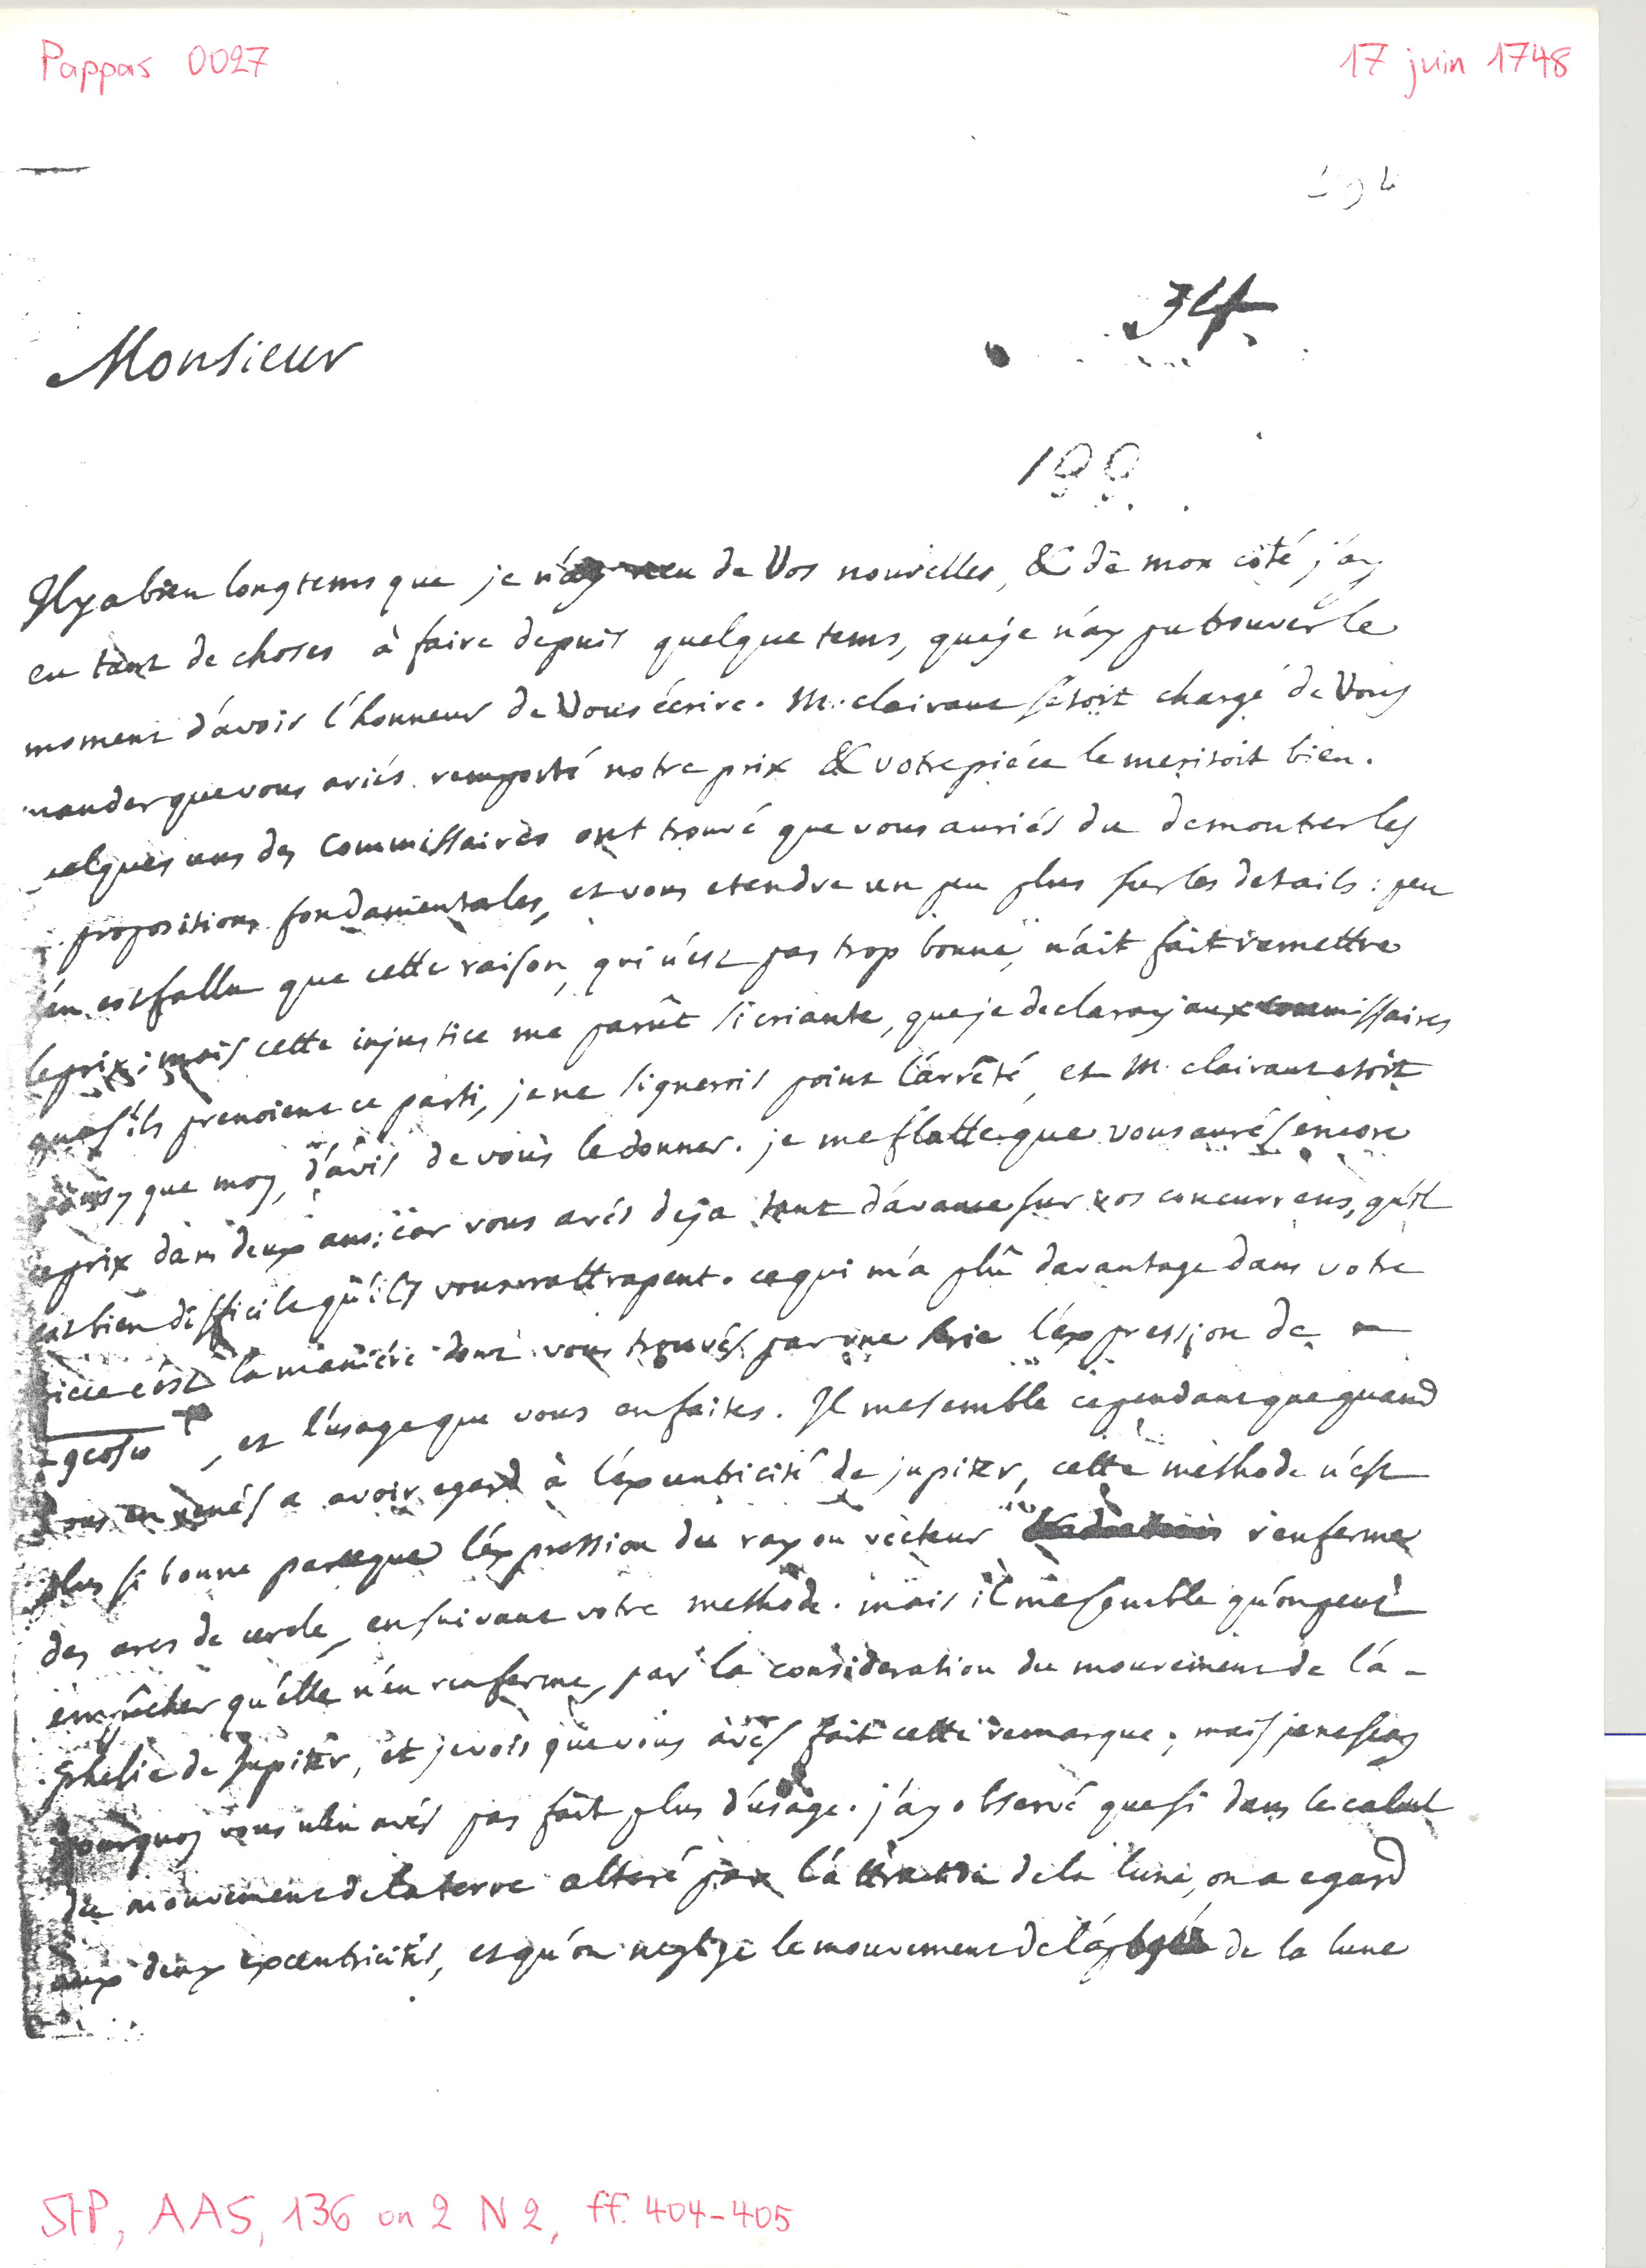 Pappas 0027
17 juin 1748
34
Monsieur
199
Il y a bien longtems que je n'ay de Vos nouvelles, & de mon côté j'ay
eu tant de choses à faire depuis quelque tems, que je n'ay pu trouver le
moment d'avoir l'honneur de Vous écrire. M. clairaut s'etoit chargé de Vous
mander que vous aviés remporté notre prix & votre piéce le meritoit bien.
quelques uns des Commissaires ont trouvé que vous auriés du demontrer les
propositions fondamentales, et vous etendre un peu plus sur les details : peu
s'en est fallu que cette raison, qui n'est pas trop bonne, n'ait fait remettre
le prix ; mais cette injustice me parût si criante, que je declaray aux commissaires
que s'ils prenoient ce parti, je ne signerois point l'arrêté, et M. clairaut etoit
ainsy que moy, d'avis de vous le donner. je me flatte que vous aurés encore
ce prix dans deux ans ; car vous avés deja tant d'avance sur vos concurrens, qu'il
est bien difficile qu'ils vous rattrapent. ce qui m'a plû davantage dans votre
piece c'est la maniére dont vous trouvés par une serie l'expression de
gcosω , et l'usage que vous en faites. Il me semble cependant que quand
vous en venés a avoir egard à l'excentricité de jupiter, cette methode n'est
plus si bonne parceque l'expression du rayon vecteur renferme
des arcs de cercle, en suivant votre methode. mais il me semble qu'on peut
empêcher qu'elle n'en renferme, par la consideration du mouvement de l'a-
phelie de Jupiter, et je vois que vous avés fait cette remarque ; mais je ne sçay
pourquoy vous n'en avés pas fait plus d'usage. j'ay observé que si dans le calcul
du mouvement de la terre alteré par l'attraction de la lune, on a egard
aux deux excentricités, et qu'on neglige le mouvement de l'apogée de la lune
StP, AAS, 136 on 2 N 2, ff. 404-405